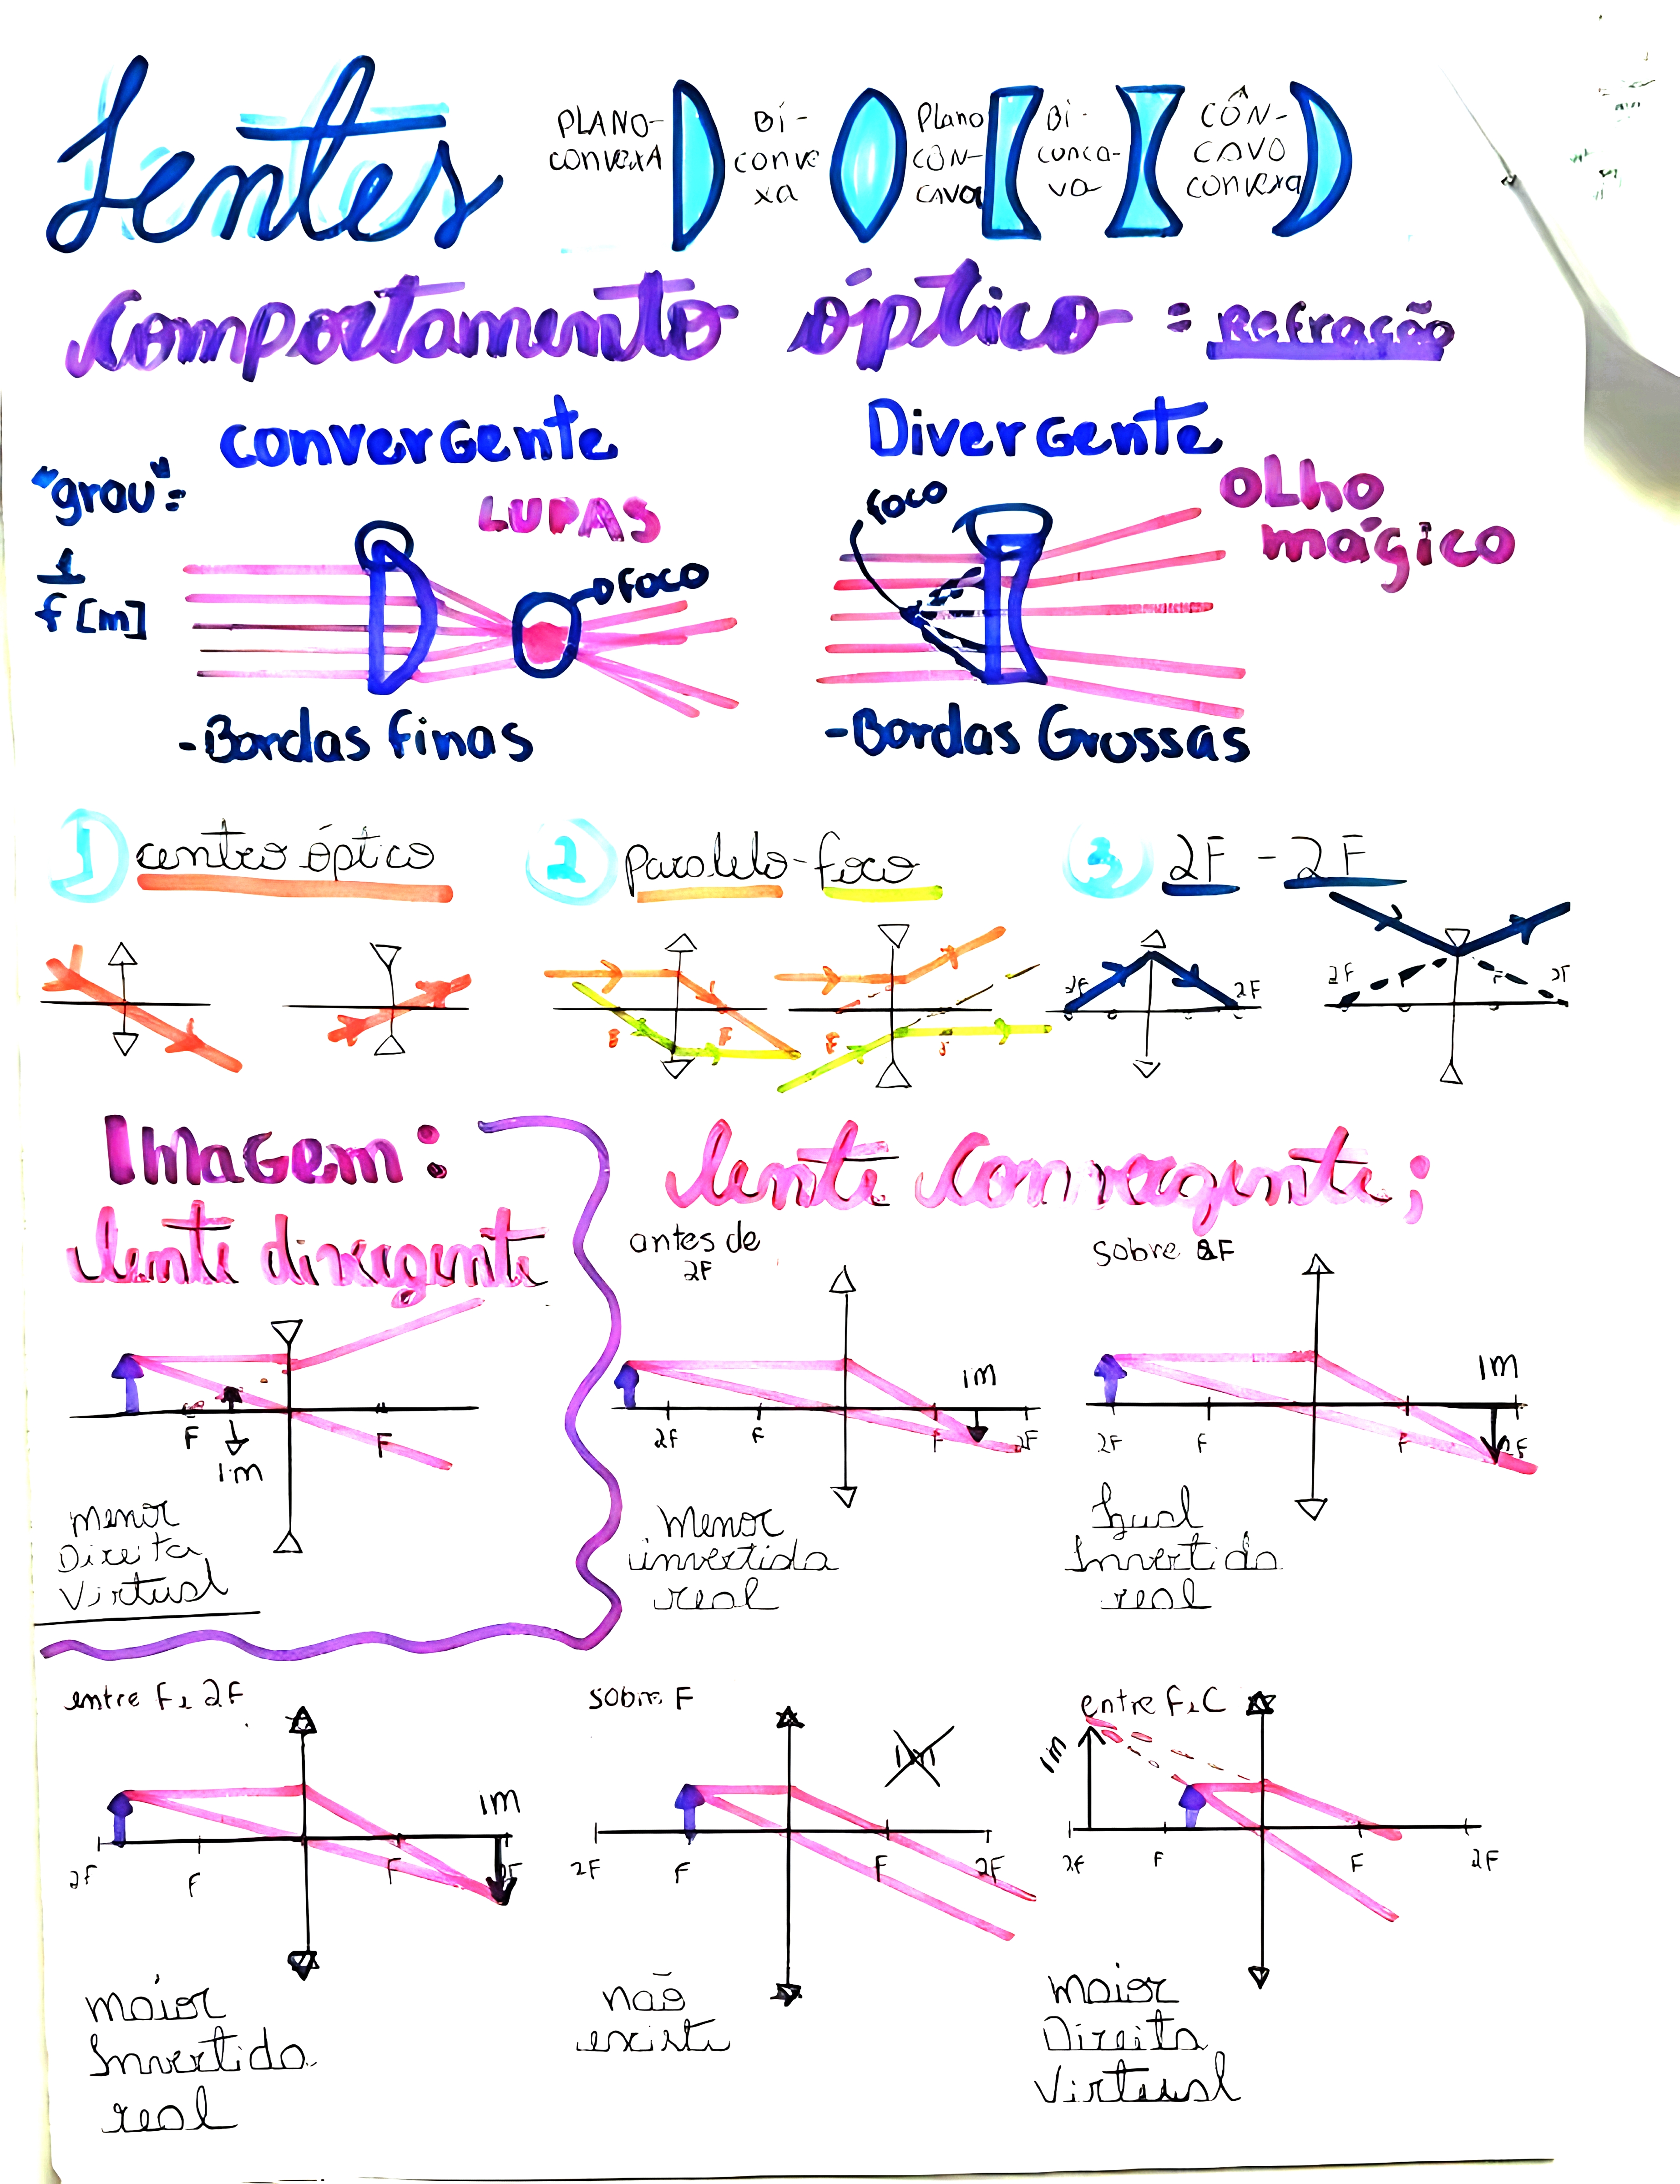 Lentes
PLANO-
CONVEXA
Bi-
conve
xa
Plano
CÔN-
CAVA
Bi-
conca-
va
CÔN-
CAVO
convexa
Comportamento óptico = Refração
convergente
Divergente
"grau"=
1
f [m]
LUPAS
foco
foco
OLho
mágico
-Bordas finas
-Bordas Grossas
1 centro óptico
2 paralelo-foco
3 2F - 2F
F
F
F
F
2F
2F
2F
F
F
2F
Imagem:
lente divergente
lente convergente;
antes de
2F
sobre 2F
F
IM
F
Menor
Direita
Virtual
2F
F
F
2F
IM
Menor
invertida
real
2F
F
F
2F
IM
Igual
Invertida
real
entre F e 2F
2F
F
F
2F
IM
maior
Invertida
real
sobre F
2F
F
F
2F
IM
não
existe
entre F e C
IM
2F
F
F
2F
maior
Direita
Virtual